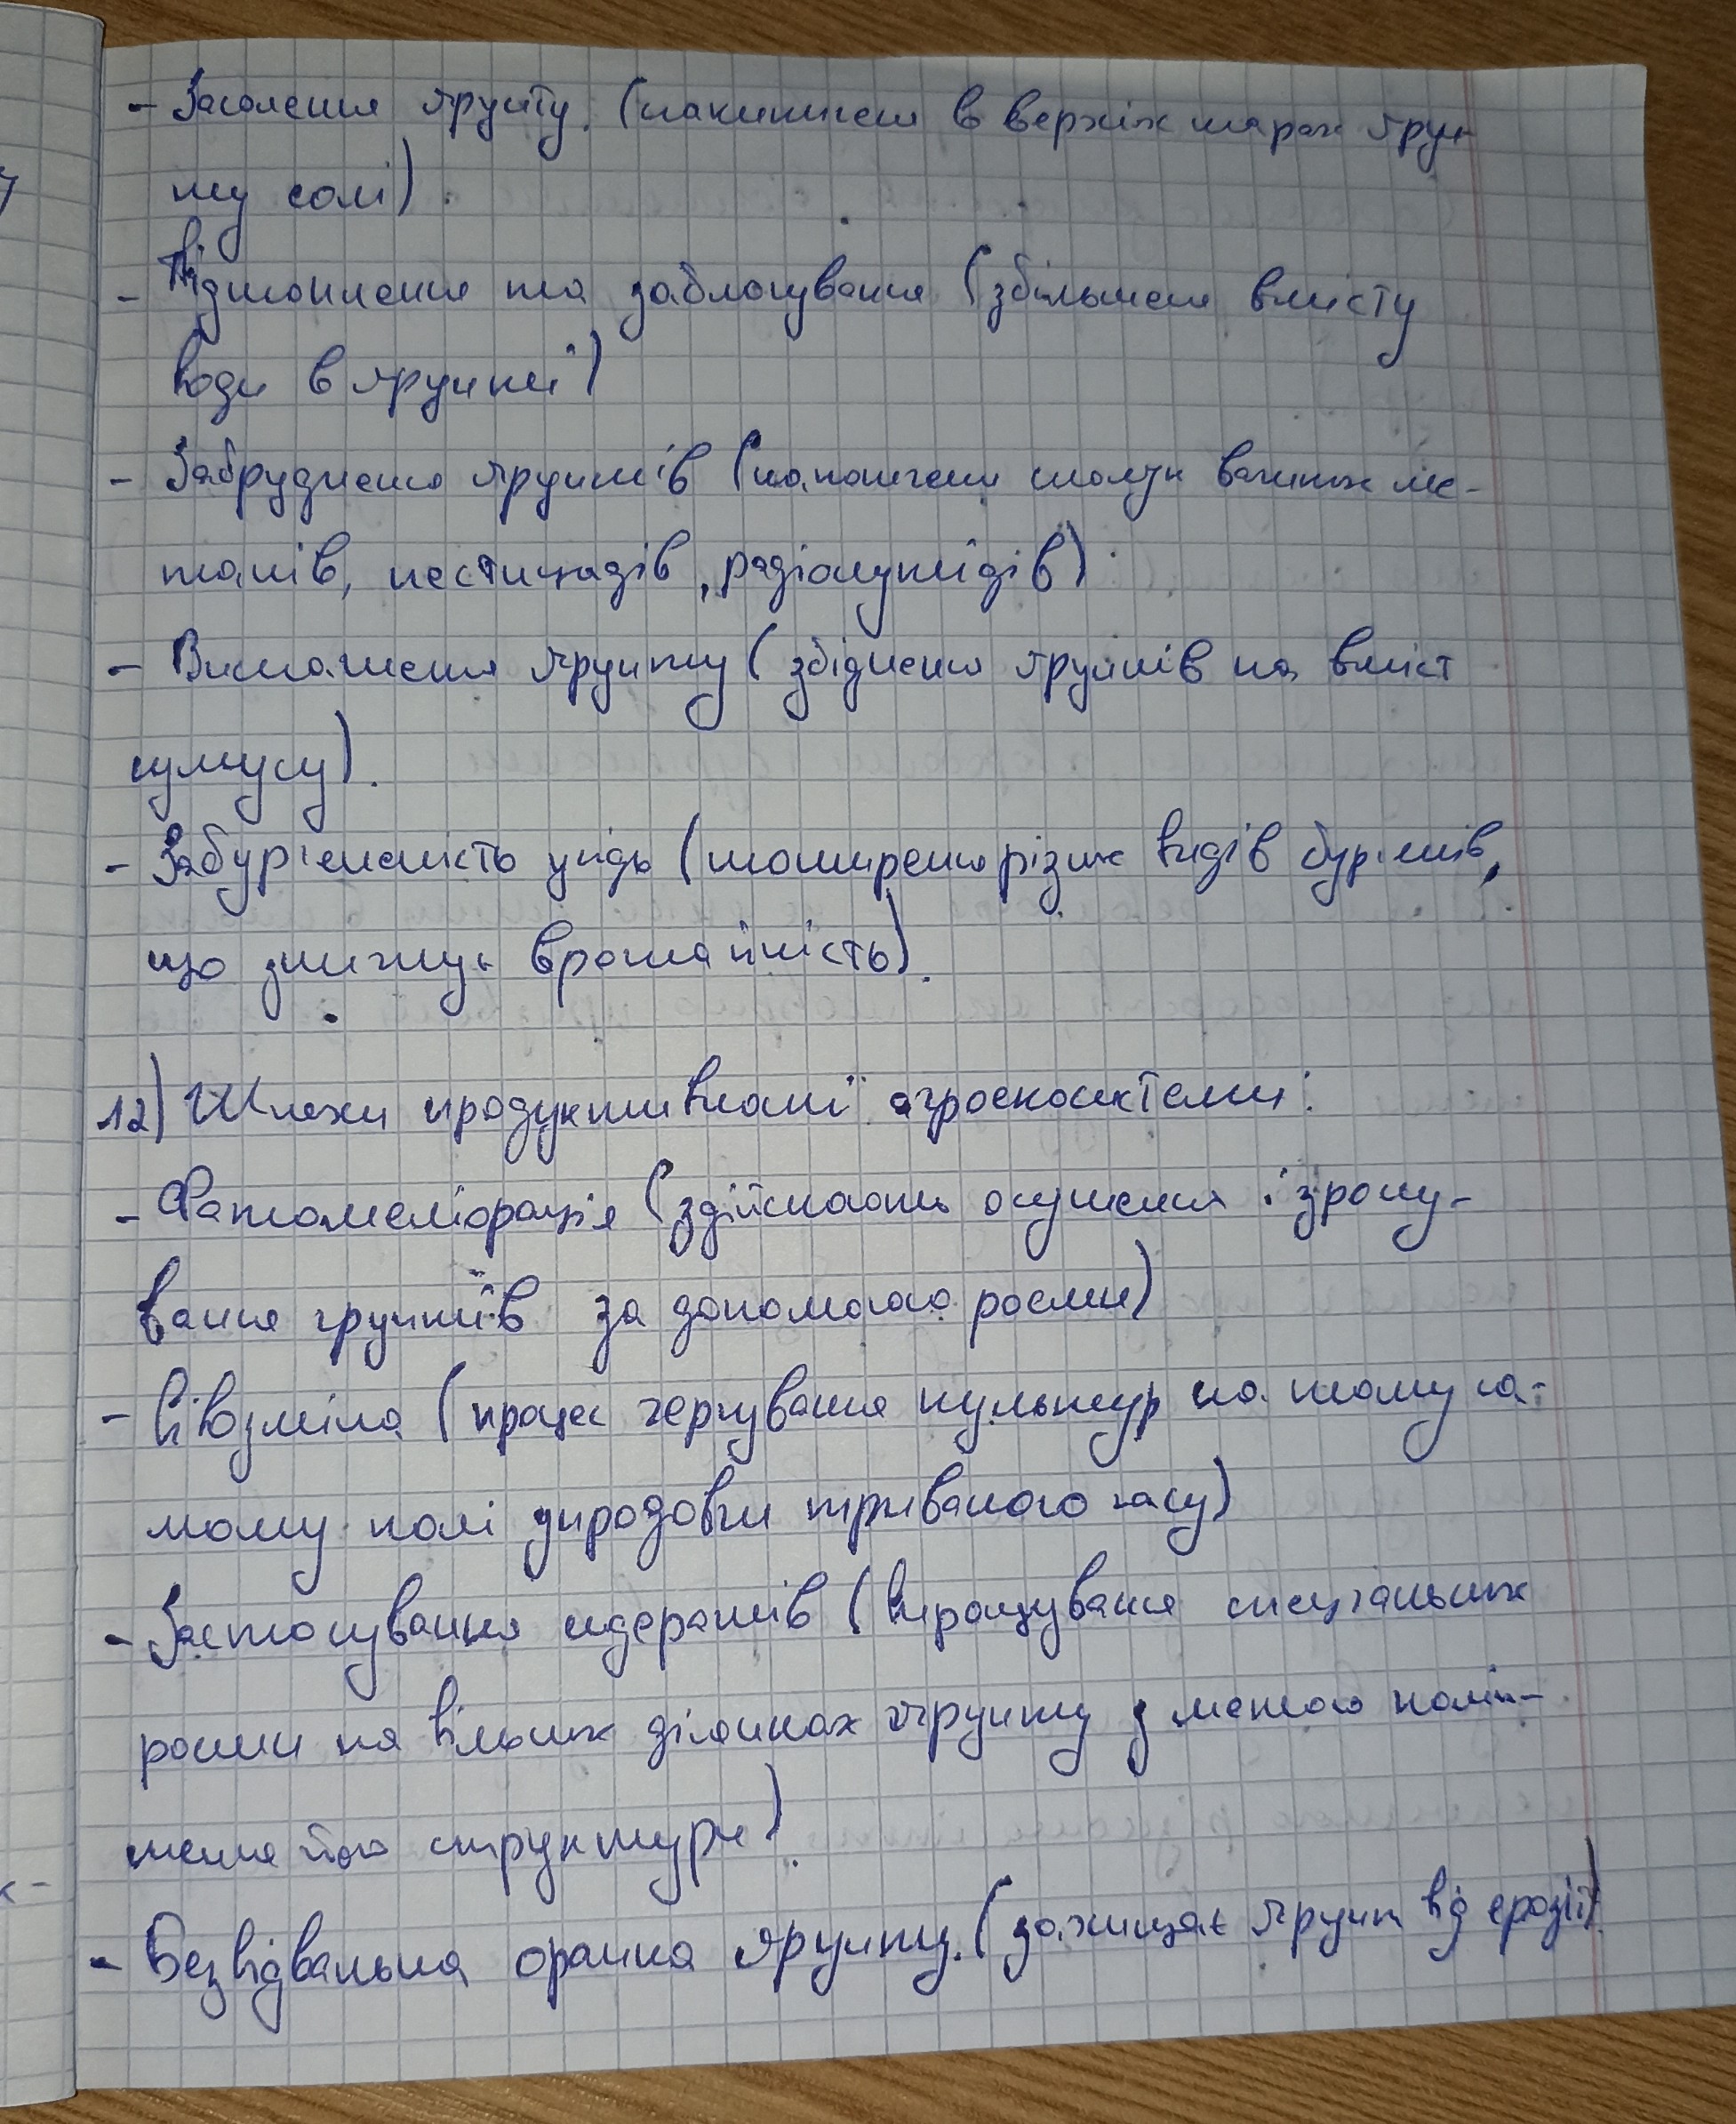 - Засолення ґрунту. (накопичен в верхніх шарах ґрун-
ту солі).
- Підтоплення та заболочування (збільшен вмісту
води в ґрунті)
- Забруднення ґрунтів (потрапляння важких ме-
талів, пестицидів, радіонуклідів)
- Виснаження ґрунту (збіднення ґрунтів на вміст
гумусу).
- Забур'яненість угідь (поширення різних видів бур'янів,
що знижує врожайність).
12) Шляхи продуктивності агроекосистеми:
- Фітомеліорація (здійснюють осушення і зрошу-
вання ґрунтів за допомогою рослин)
- Сівозміна (процес чергування культур на тому са-
мому полі упродовж тривалого часу)
- Застосування сидератів (вирощування спеціальних
рослин на вільних ділянках ґрунту з метою поліп-
шення його структури).
- Безвідвальна оранка ґрунту. (захищає ґрунт від ерозії)